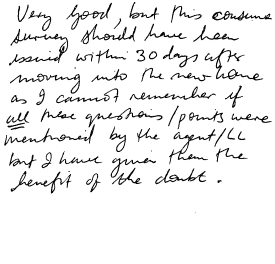 Very Good, but this consume
Survey should have been
issued within 30 days after
moving into the new home
as I cannot remember if
all these questions/points were
mentioned by the agent/LL
but I have given them the
benefit of the doubt.